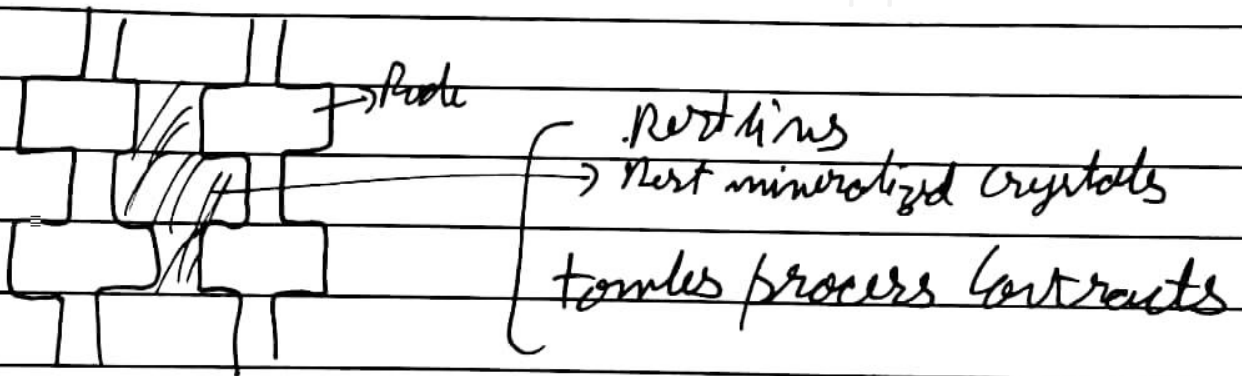 Rode
Restlins
Rest mineralized crystals
tomles process Contracts